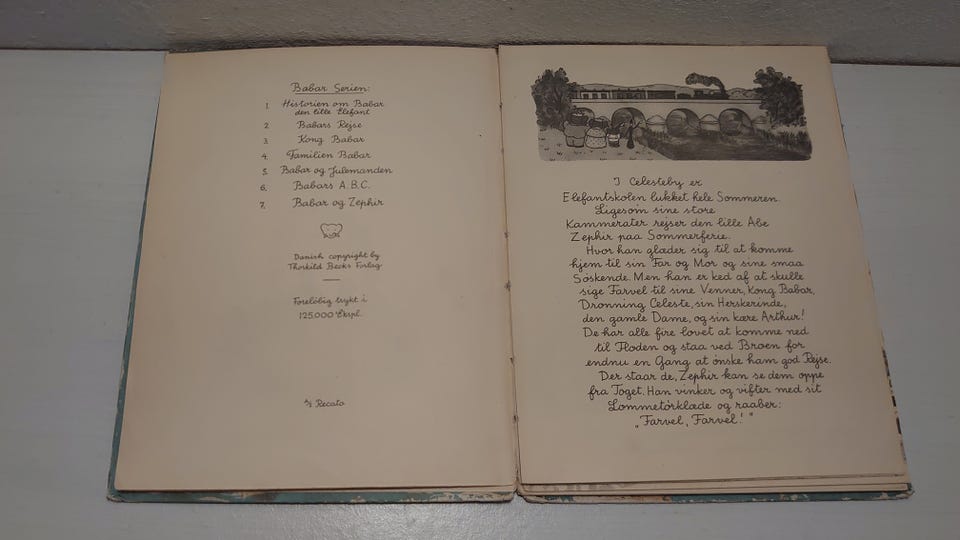 Babar Serien:
1. Historien om Babar
den lille Elefant
2. Babars Rejse
3. Kong Babar
4. Familien Babar
5. Babar og Julemanden
6. Babars A.B.C.
7. Babar og Zephir
Danish copyright by
Thorkild Becks Forlag
Foreløbig trykt i
125.000 Ekspl.
A/S Recato
I Celesteby er
Elefantskolen lukket hele Sommeren.
Ligesom sine store
Kammerater rejser den lille Abe
Zephir paa Sommerferie.
Hvor han glæder sig til at komme
hjem til sin Far og Mor og sine smaa
Søskende. Men han er ked af at skulle
sige Farvel til sine Venner, Kong Babar,
Dronning Celeste, sin Herskerinde,
den gamle Dame, og sin kære Arthur!
De har alle fire lovet at komme ned
til Floden og staa ved Broen for
endnu en Gang at ønske ham god Rejse.
Der staar de, Zephir kan se dem oppe
fra Toget. Han vinker og vifter med sit
Lommetørklæde og raaber:
„Farvel, Farvel!"